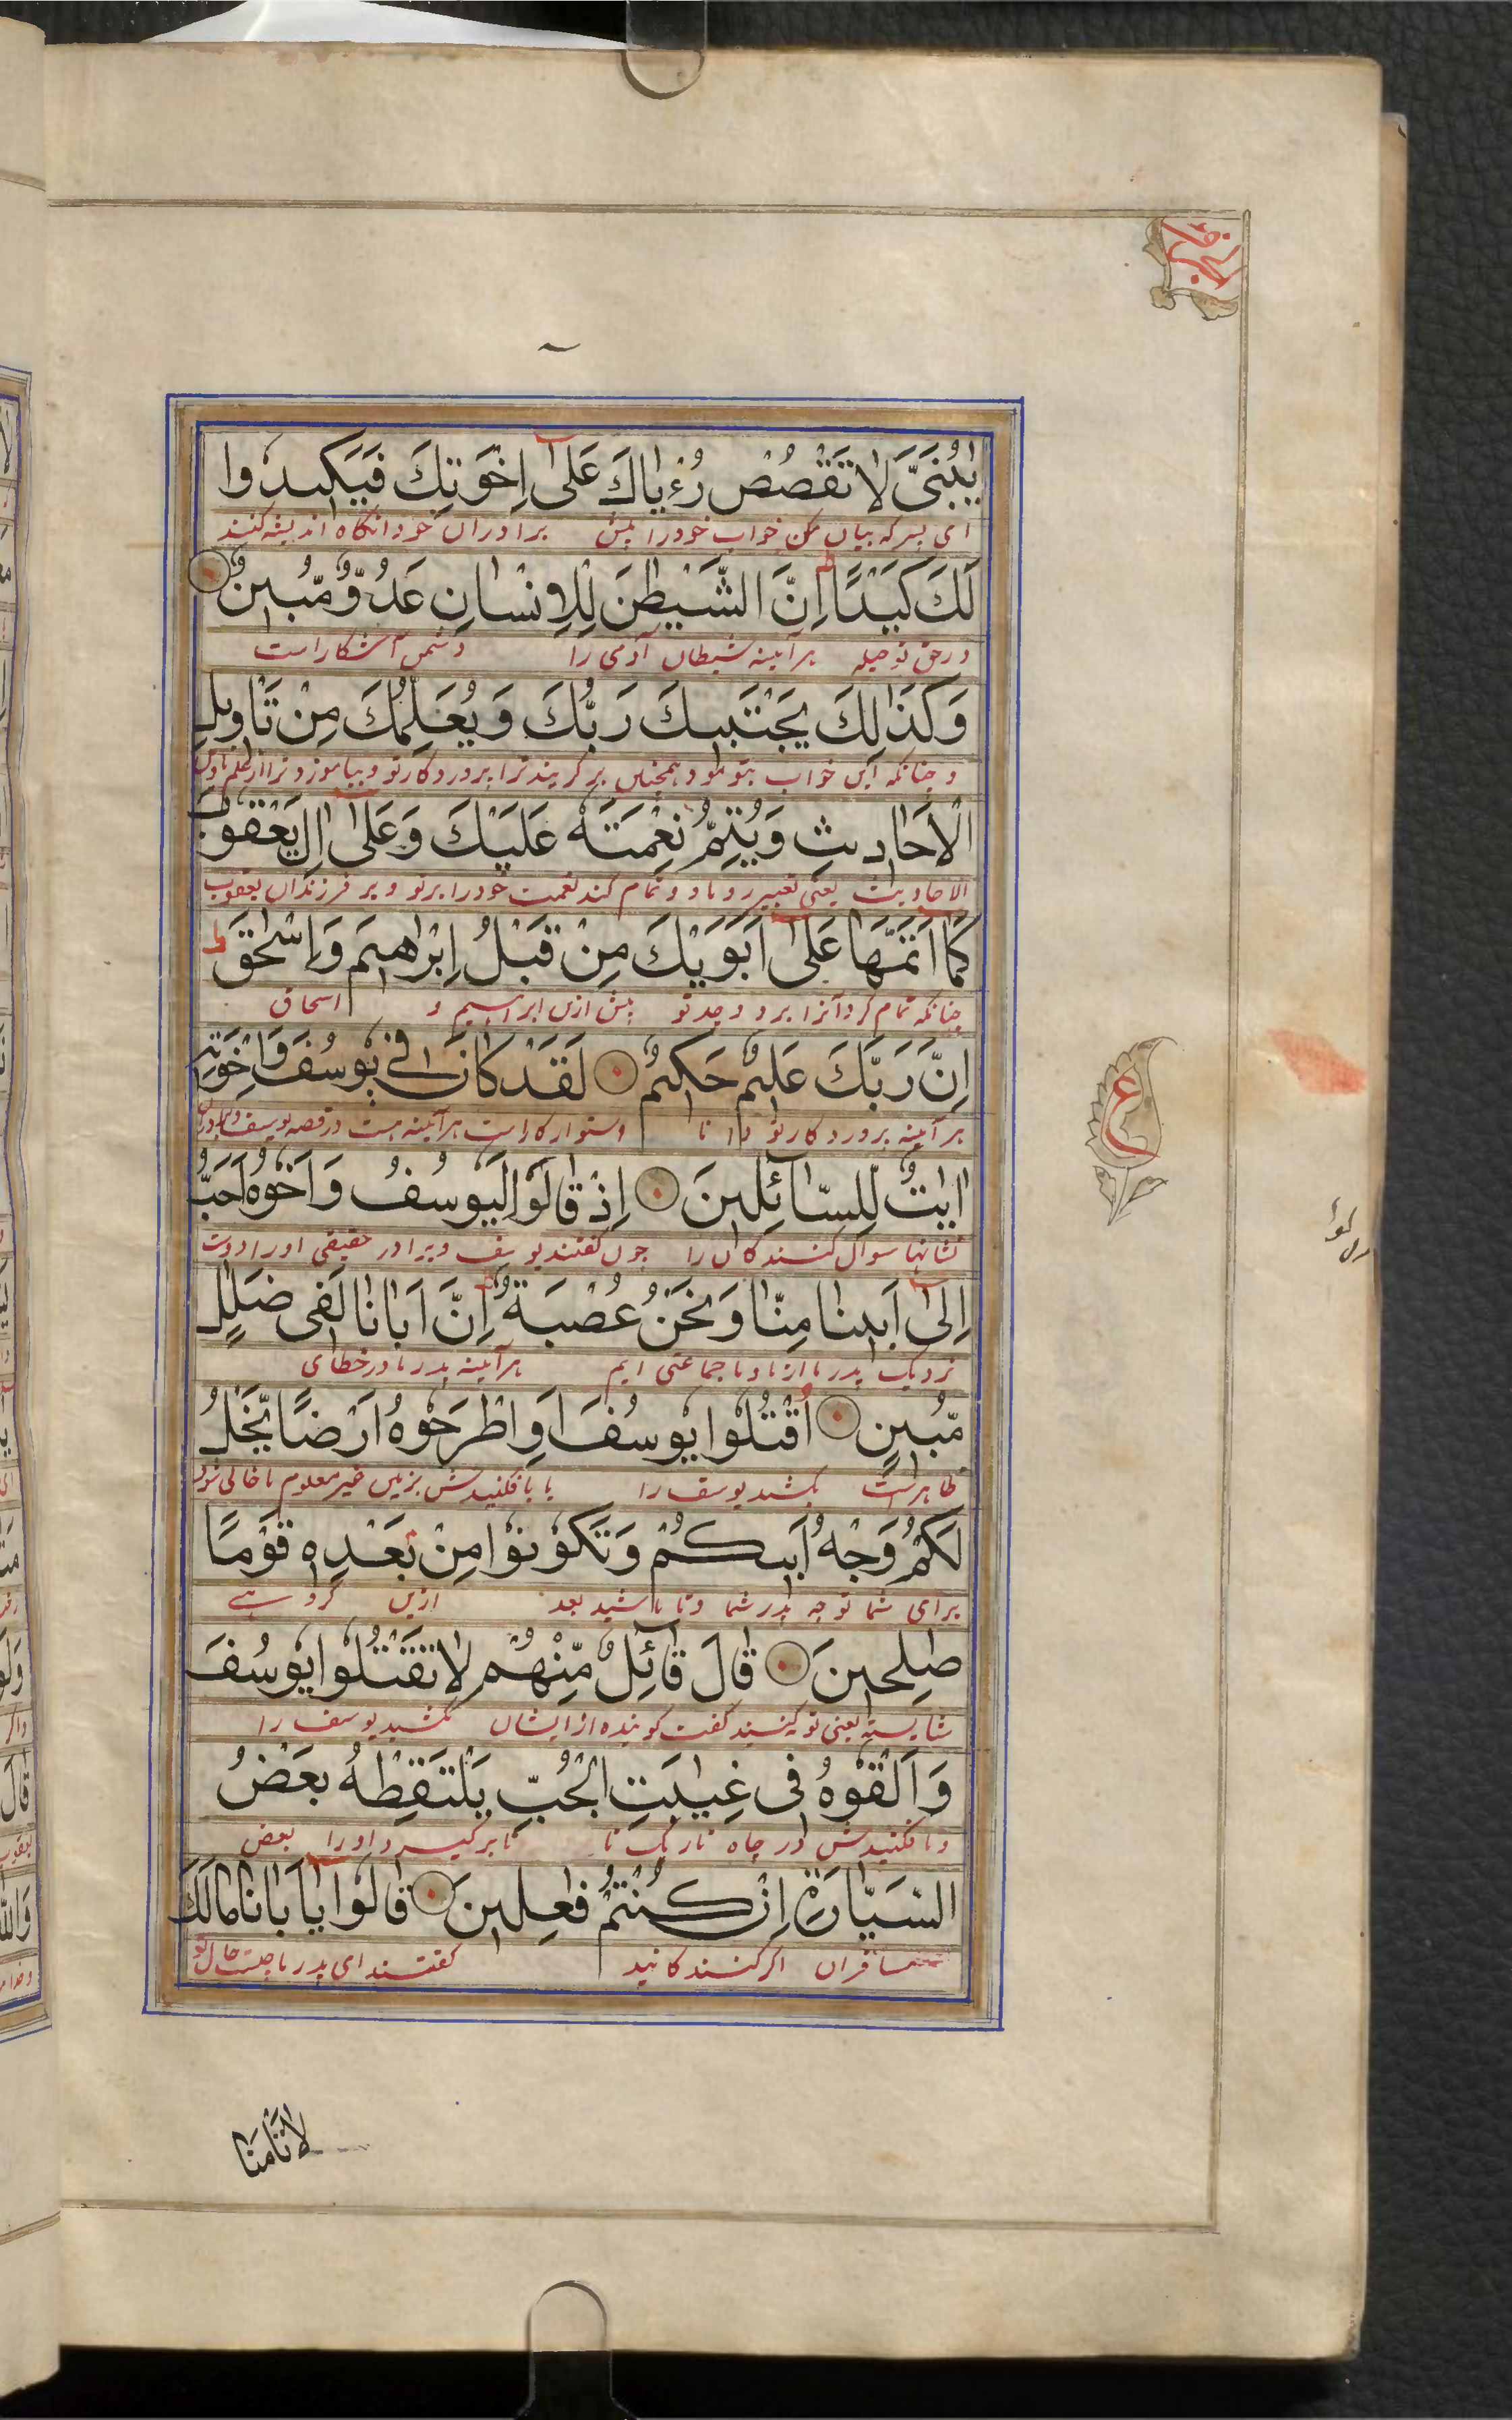 يٰبُنَىَّ لَا تَقْصُصْ رُءْيَاكَ عَلٰٓى اِخْوَتِكَ فَيَكِيدُوا
ای پسرکه بیان مکن خواب خود را پیش برادران خود انکاه اندیشه کنند
لَكَ كَيْدًا اِنَّ الشَّيْطٰنَ لِلْاِنْسَانِ عَدُوٌّ مُّبِينٌ
در حق تو حیله هر آیینه شیطان آدمی را دشمن آشکار است
وَكَذَالِكَ يَجْتَبِيكَ رَبُّكَ وَيُعَلِّمُكَ مِنْ تَاْوِيلِ
و چنانکه این خواب بتو نمود همچنین بر کزیند ترا پروردکار تو و بیاموزد ترا از علم تاویل
الْاَحَادِيثِ وَيُتِمُّ نِعْمَتَهُ عَلَيْكَ وَعَلٰٓى اٰلِ يَعْقُوبَ
الاحادیث یعنی تعبیر رویا و تمام کند نعمت خود را بر تو و بر فرزندان یعقوب
كَمَا اَتَمَّهَا عَلٰٓى اَبَوَيْكَ مِنْ قَبْلُ اِبْرٰهِيمَ وَاِسْحٰقَ ط
چنانکه تمام کرد آنرا بر دو جد تو پیش ازین ابراهیم و اسحاق
اِنَّ رَبَّكَ عَلِيمٌ حَكِيمٌ لَقَدْ كَانَ فِى يُوسُفَ وَاِخْوَتِهِ
هر آیینه پروردکار تو دانا استوار کار است هر آیینه هست در قصه یوسف و برادران
اٰيٰتٌ لِّلسَّآئِلِينَ اِذْ قَالُوا لَيُوسُفُ وَاَخُوهُ اَحَبُّ
نشانها سوال کنندکان را چون کفتند یوسف و برادر حقیقی او را دوست
اِلٰٓى اَبِينَا مِنَّا وَنَحْنُ عُصْبَةٌ اِنَّ اَبَانَا لَفِى ضَلٰلٍ
نزدیک پدر ما از ما و ما جماعتی ایم هر آیینه پدر ما در خطای
مُّبِينٍ اقْتُلُوا يُوسُفَ اَوِ اطْرَحُوهُ اَرْضًا يَّخْلُ
ظاهر است بکشید یوسف را یا بافکنیدش بزمین غیر معلوم تا خالی شود
لَكُمْ وَجْهُ اَبِيكُمْ وَتَكُونُوا مِنْ بَعْدِهِ قَوْمًا
برای شما توجه پدر شما و تا باشید بعد ازین کروهی
صٰلِحِينَ قَالَ قَآئِلٌ مِّنْهُمْ لَا تَقْتُلُوا يُوسُفَ
شایسته یعنی توبه کنید کفت کوینده از ایشان مکشید یوسف را
وَاَلْقُوهُ فِى غِيٰبَتِ الْجُبِّ يَلْتَقِطْهُ بَعْضُ
و بافکنیدش در چاه تاریک تا تا بر کیرد او را بعض
السَّيَّارَةِ اِنْ كُنْتُمْ فٰعِلِينَ قَالُوا يَا اَبَانَا مَالَكَ
مسافران اکر کنندکانید کفتند ای پدر ما چیست حال تو
لَا تَاْمَنَّا
ع